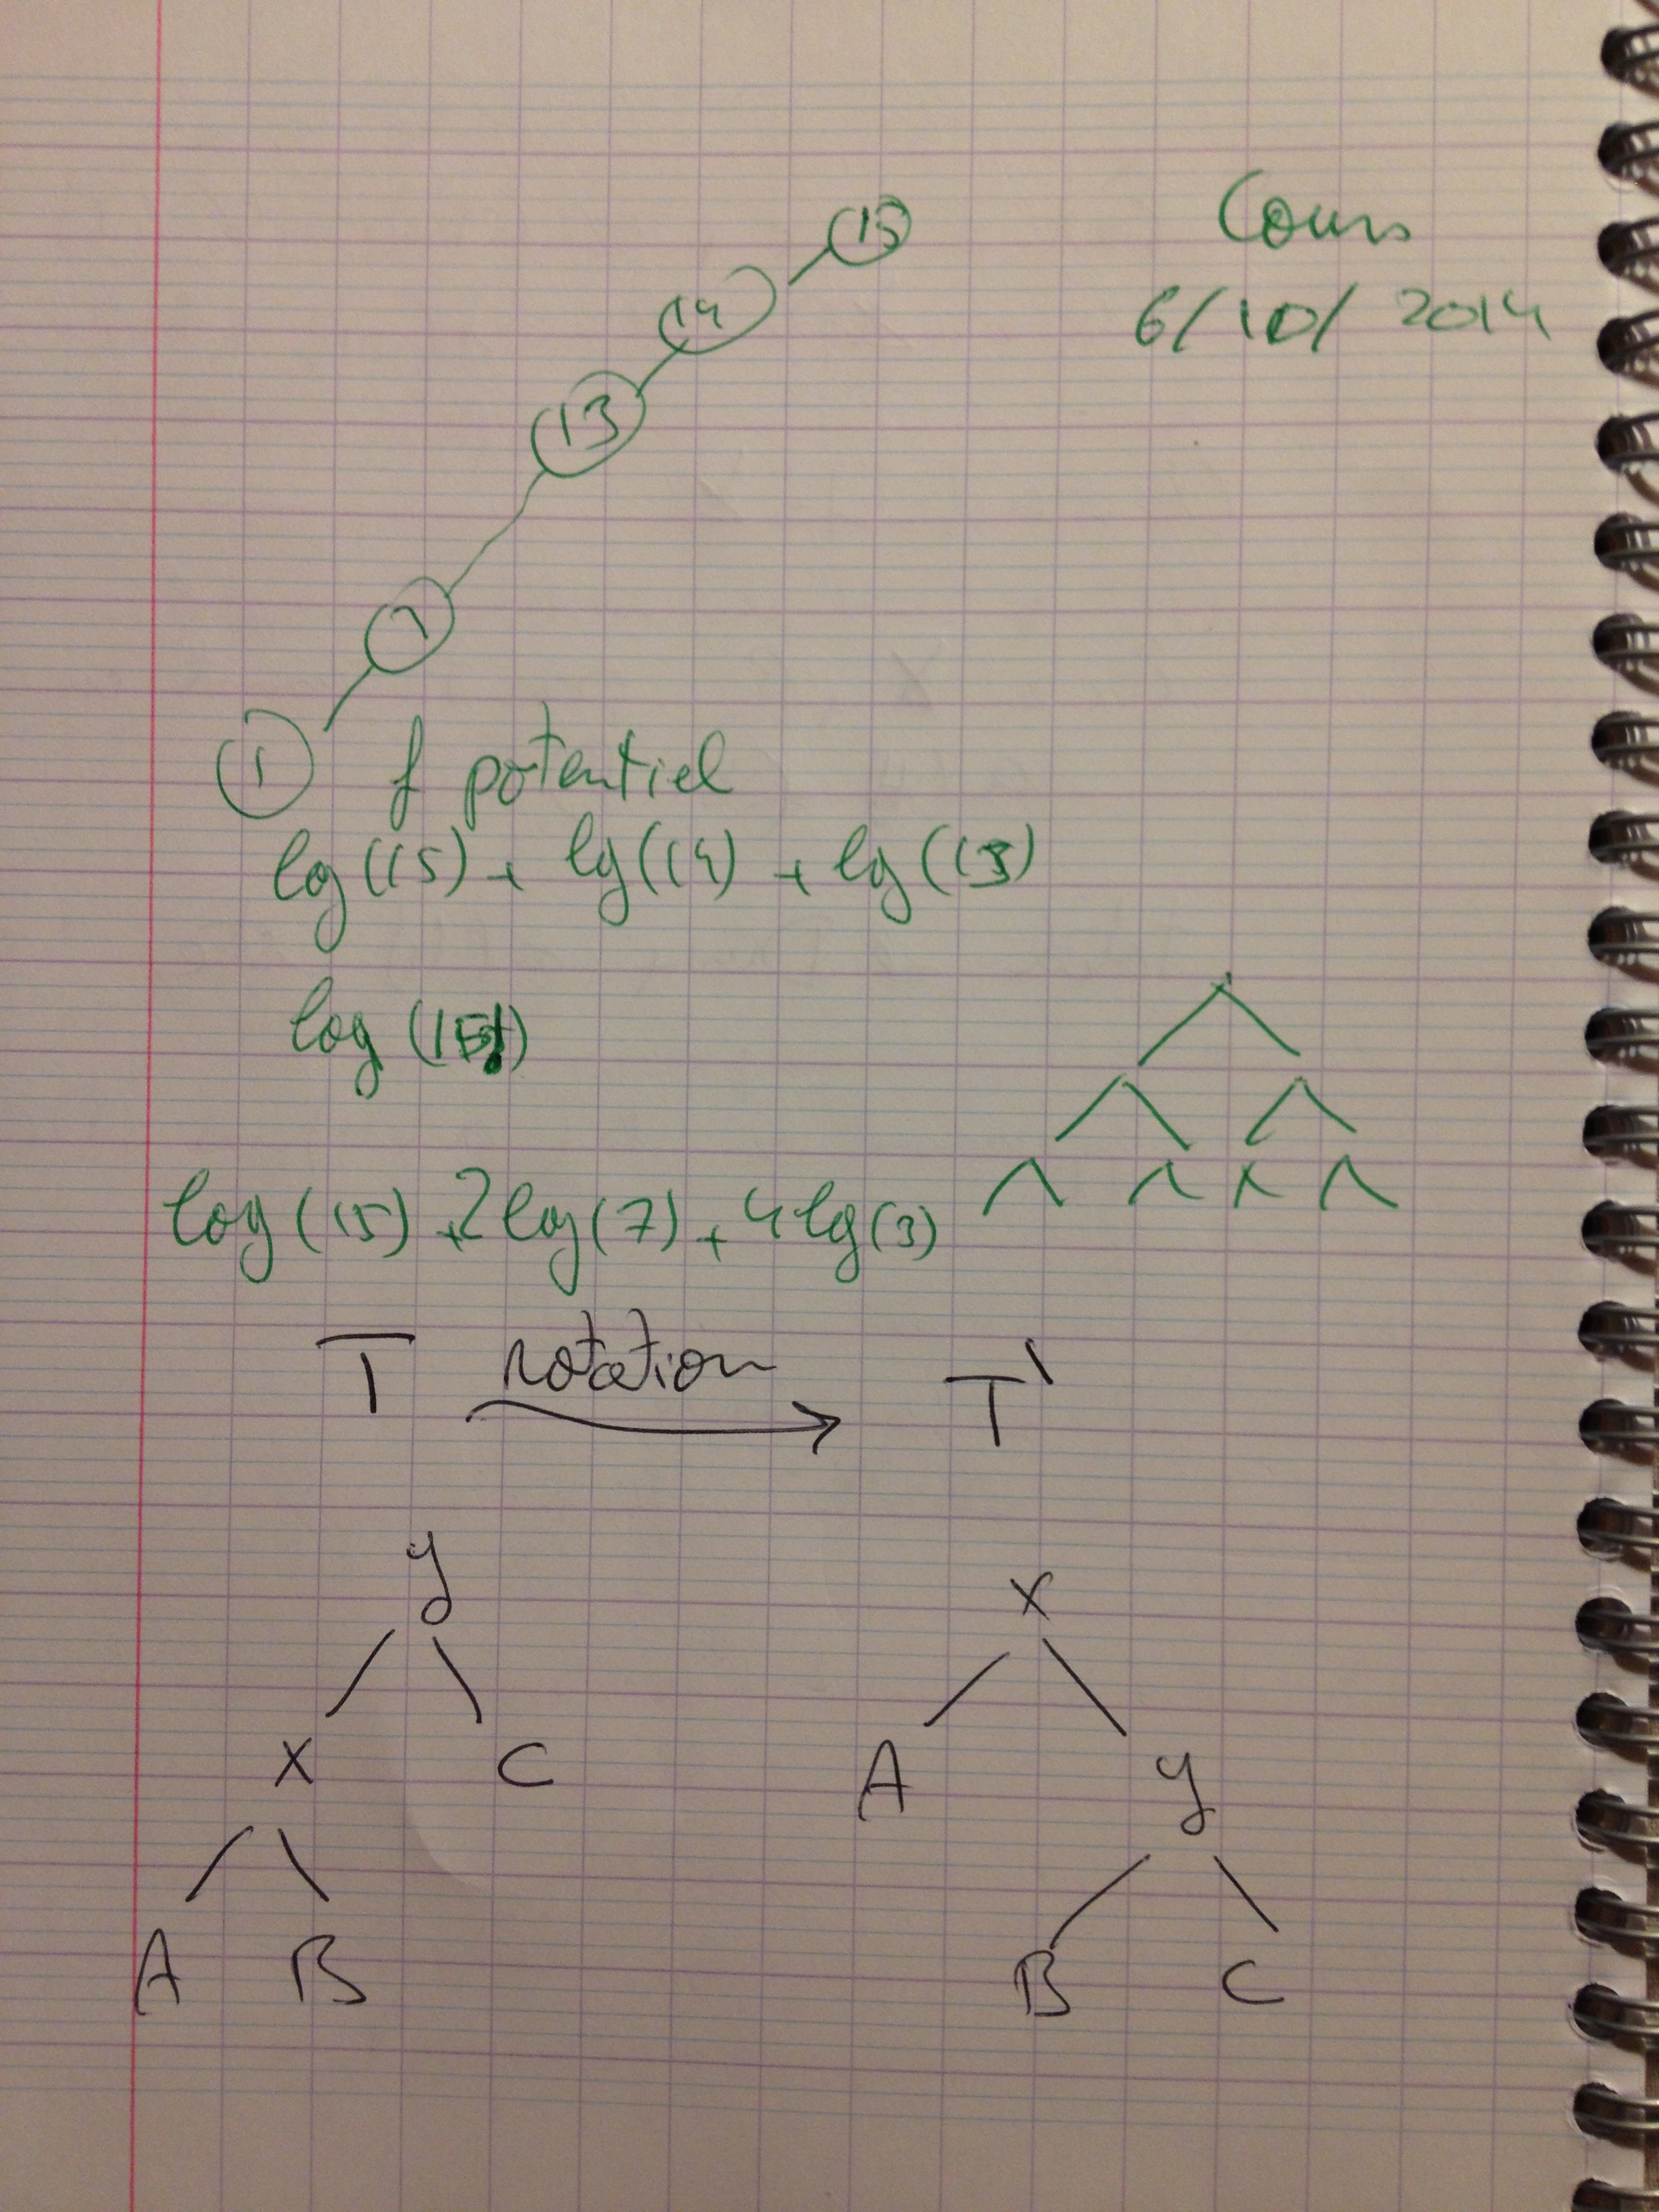 Cours
6/10/2014
15
14
13
1
f potentiel
log(15) + lg(14) + lg(13)
log(15!)
log(15) + 2log(7) + 4lg(3)
T rotation T'
y x
x C A y
A B B C